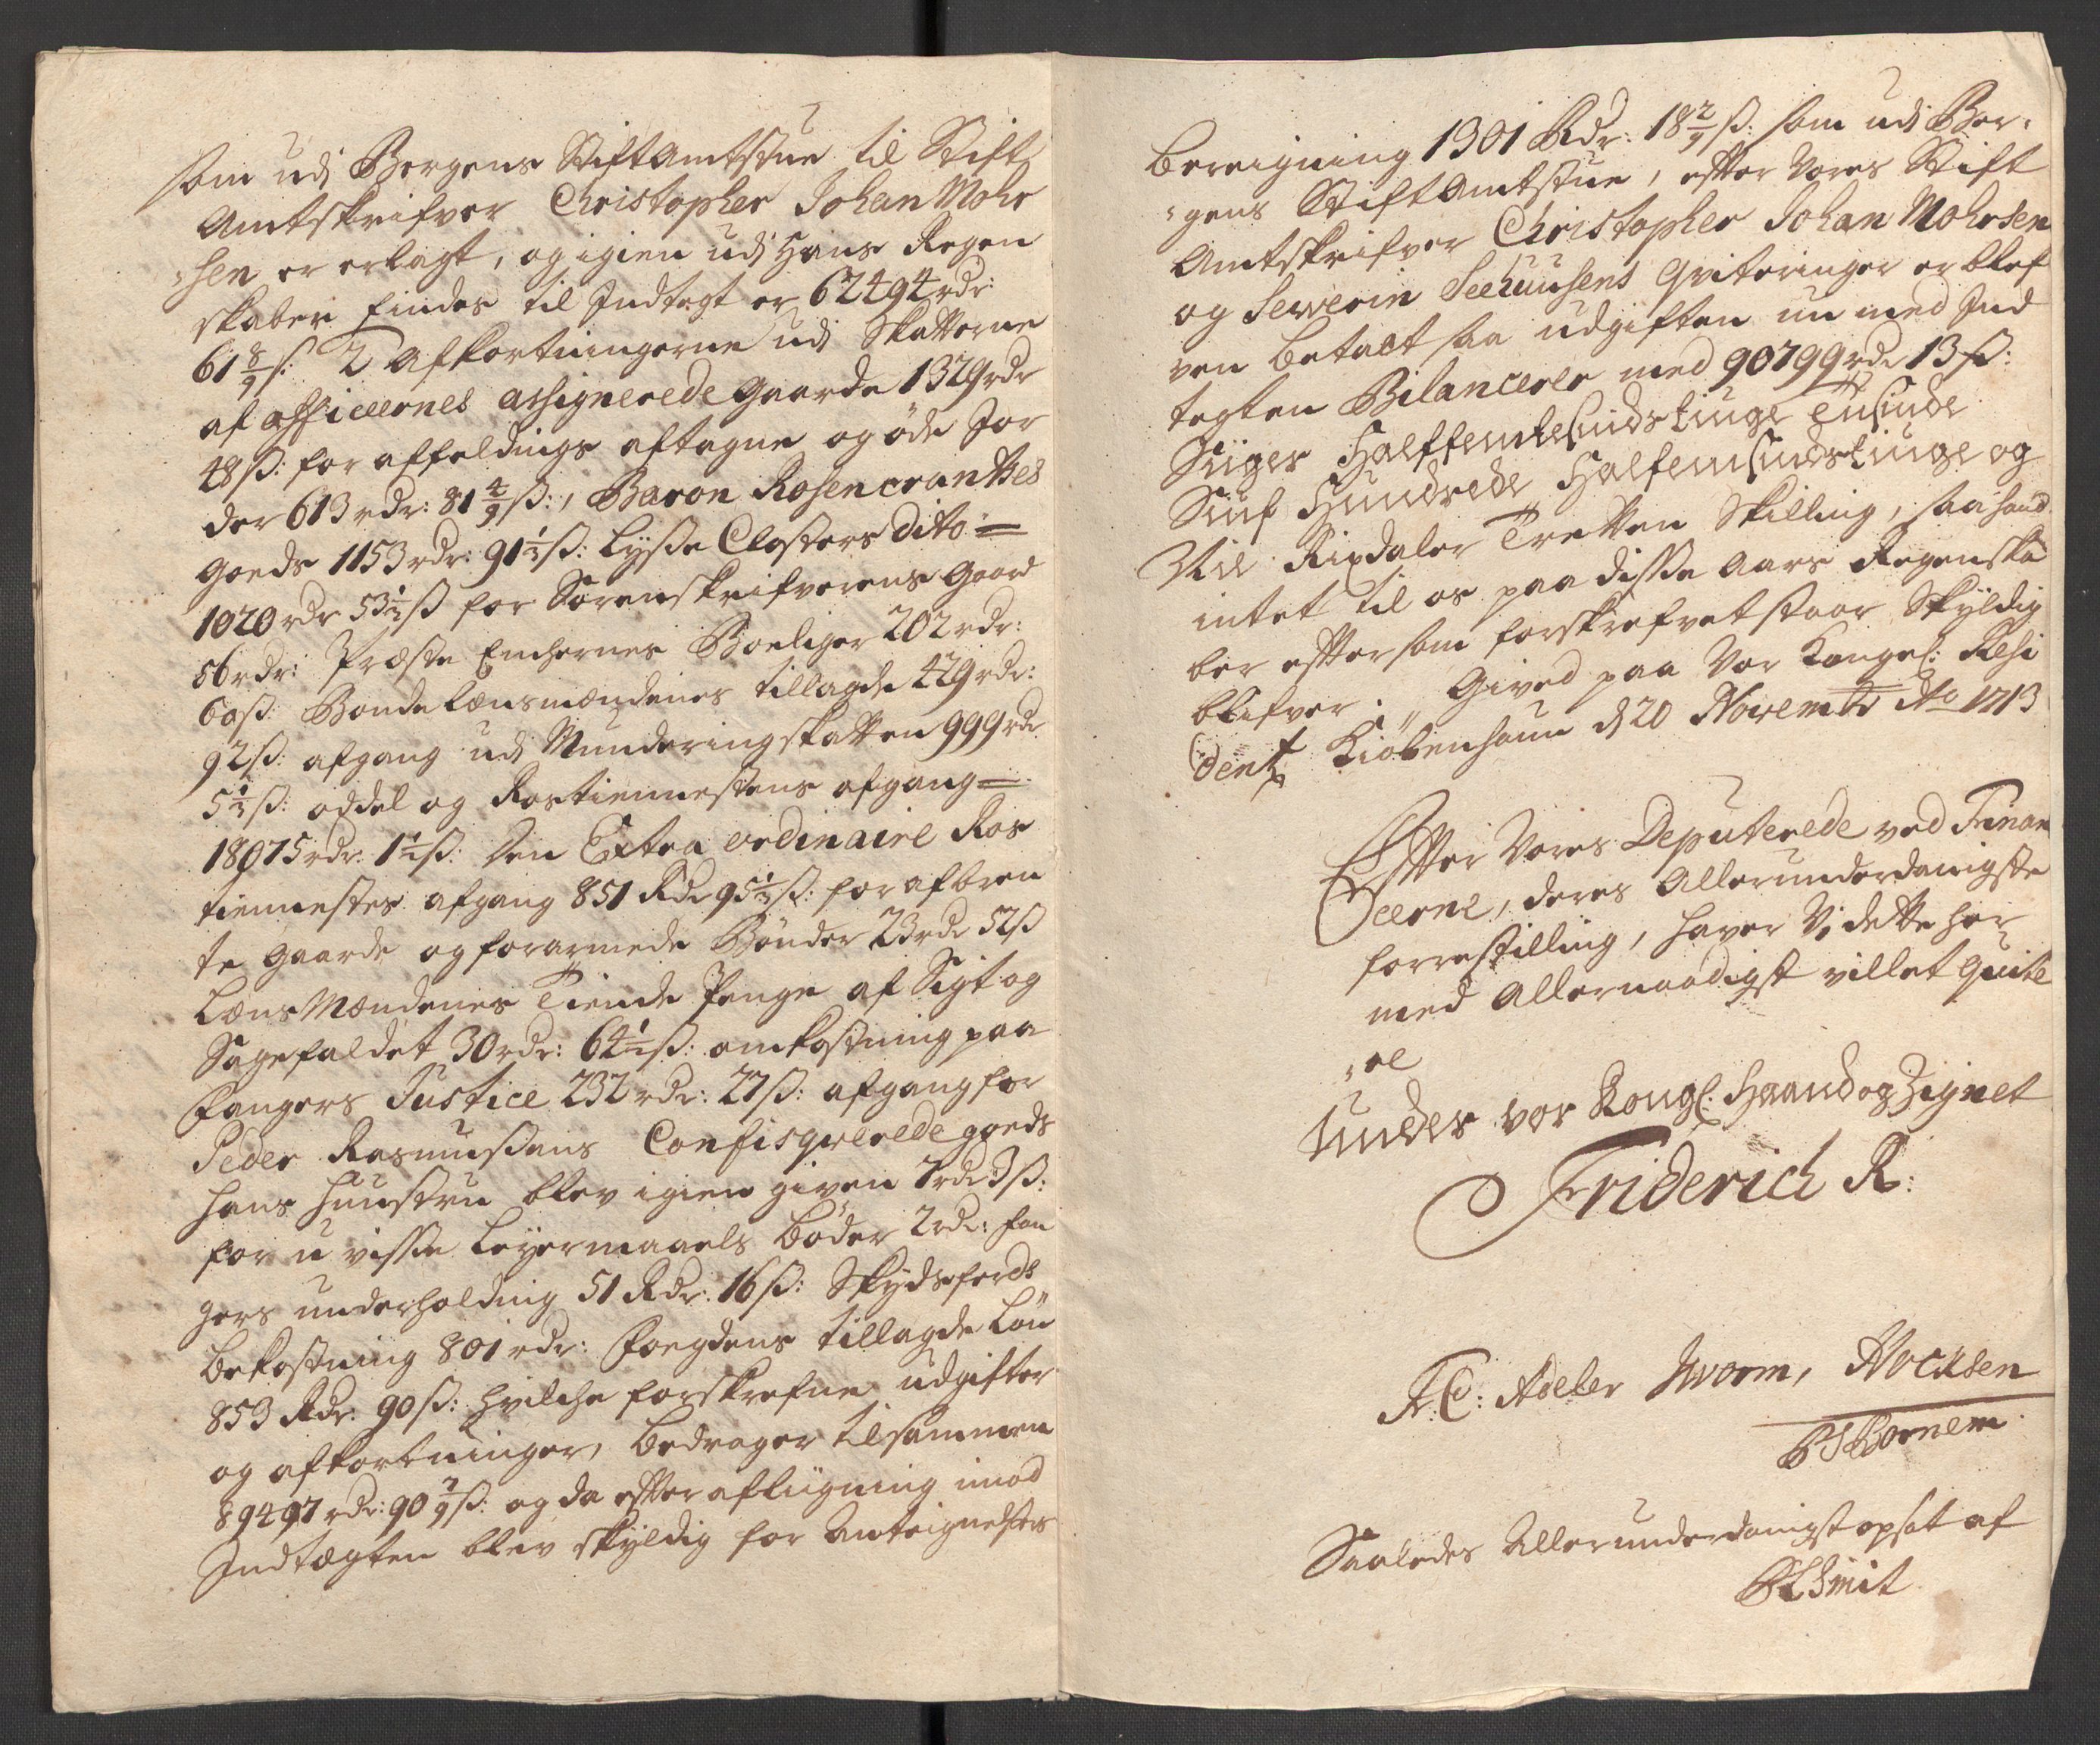 som udj Bergens StiftAmtstue til Stift
Amtskrifver Christopher Johan Mohr
„sen er erlagt, og igien udj Hans Regen
skaber findes til Indtegt er 62494 rdr:
61 8/9 ß: 2 Afkortningerne udj Skatterne
af officerernes assignerede Gaarde 1329 rdr
48 ß: for affeldings aftagne og øde Jor
der 613 rdr: 81 4/9 ß:, Baron Rosencrantzes
Goeds 1153 rdr: 91 1/2 ß: Lysse Closters dito =
1020 rdr 53 1/2 ß for Sorenskrifverens Gaard
56 rdr: Præste Enchernes Boeliger 202 rdr:
60 ß: Bonde Lænsmændenes tillagde 429 rdr:
92 ß: afgang udj Munderingskatten 999 rdr
5 1/2 ß: oddel og Rostiennestens afgang =
18075 rdr: 1 1/2 ß: Den Extra ordinaire Ros
tiennestes afgang 851 Rdr 95 1/2 ß: for afbren
te Gaarde og forarmede Bønder 23 rdr 52 ß
LænsMændenes Tiende Penge af Sigt og
Sagefaldet 30 rdr: 64 1/2 ß: omkostning paa
Fangers Justice 232 rdr: 27 ß: afgang for
Peder Rasmussens Confisqverede goeds
hans Huustru blev igien given 7 rdr 3 ß:
for u visse Leyermaaels Bøder 2 rdr: fan
gers underholding 51 Rdr: 16 ß: Skydsferds
bekostning 801 rdr: Foegdens tillagde Løn
853 Rdr: 90 ß: hvilche forskrefne udgifter
og afkortninger, bedrager tilsammen
89497 rdr: 90 7/9 ß: og da efter afliigning imod
Indtægten blev skyldig for Antegnelsers
bereigning 1301 Rdr: 18 2/9 ß: som udj Ber„
„gens StiftAmtstue, efter Vores Stift
Amtskrifver Christopher Johan Mohrsen
og Sewerin Seehuusens Qviteringer er blef
ven betalt saa udgiften nu med Ind
tegten Bilancerer med 90799 rdr 13 ß:
Siiger Halffemtesindstiuge Tusinde
Siuf Hundrede Halfemsindstiuge og
Nie Rixdaler Tretten Skilling, saa hand
intet til os paa disse Aars Regenska
ber efter som forskrefvet staar Skyldig
blifver. „ Gived paa Vor Kongel: Resi
dentz Kiøbenhaun d 20 Novembr Ao 1713
Efter Vores Deputerede ved Finan
cerne, deres Allerunderdanigste
forrestilling, haver Vi dette her
med Allernaadigst villet Quite
„re
Under vor Kongl: Haand og Zignet
Friderich R:
F. C: Adeler Worm,
Saaledes Allerunderdanigst opsat af
Schmit